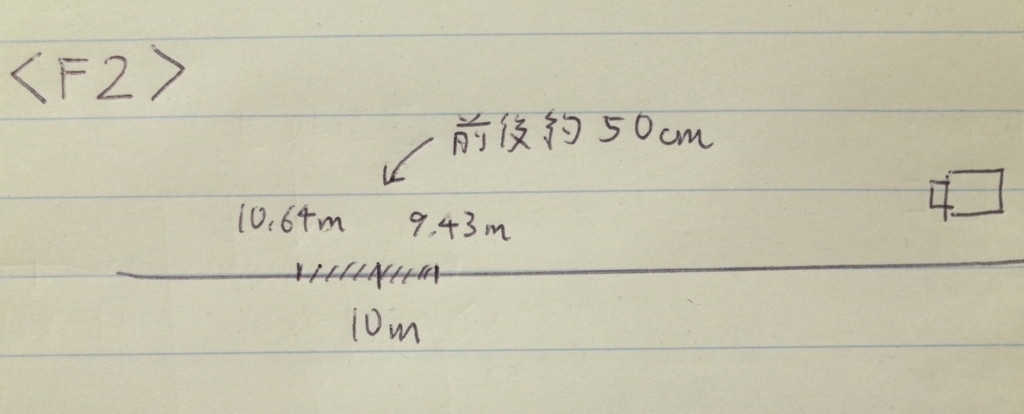 <F2>
前後約50cm
10.64m 9.43m
10m